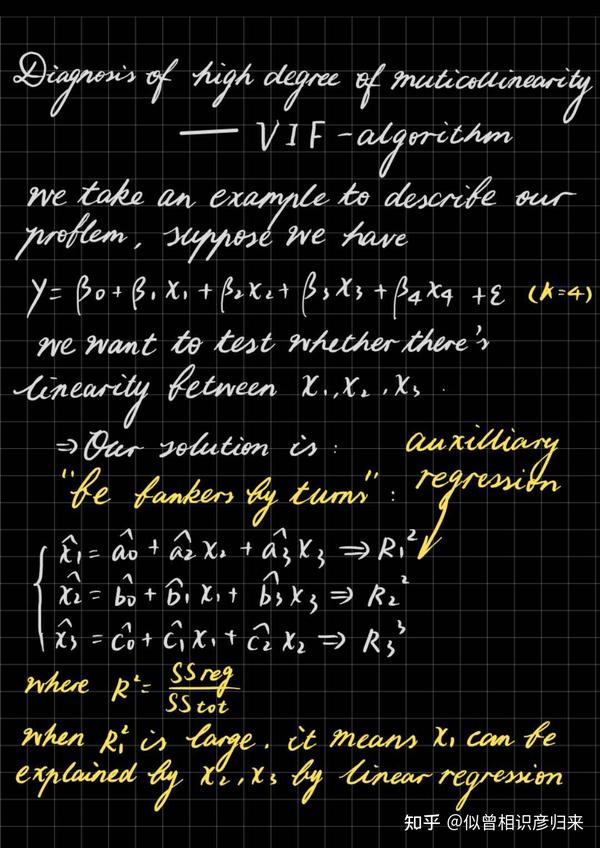 Diagnosis of high degree of muticollinearity
— VIF -algorithm
we take an example to describe our
problem, suppose we have
Y = β0 + β1 X1 + β2 X2 + β3 X3 + β4 X4 + ε (K=4)
we want to test whether there's
linearity between X1, X2, X3.
⇒ Our solution is : auxilliary
"be bankers by turns" : regression
x̂1 = â0 + â2 X2 + â3 X3 ⇒ R1²
x̂2 = b̂0 + b̂1 X1 + b̂3 X3 ⇒ R2²
x̂3 = ĉ0 + ĉ1 X1 + ĉ2 X2 ⇒ R3³
where R² = SSreg / SStot
when R1² is large. it means X1 can be
explained by X2, X3 by linear regression
知乎 @似曾相识彦归来